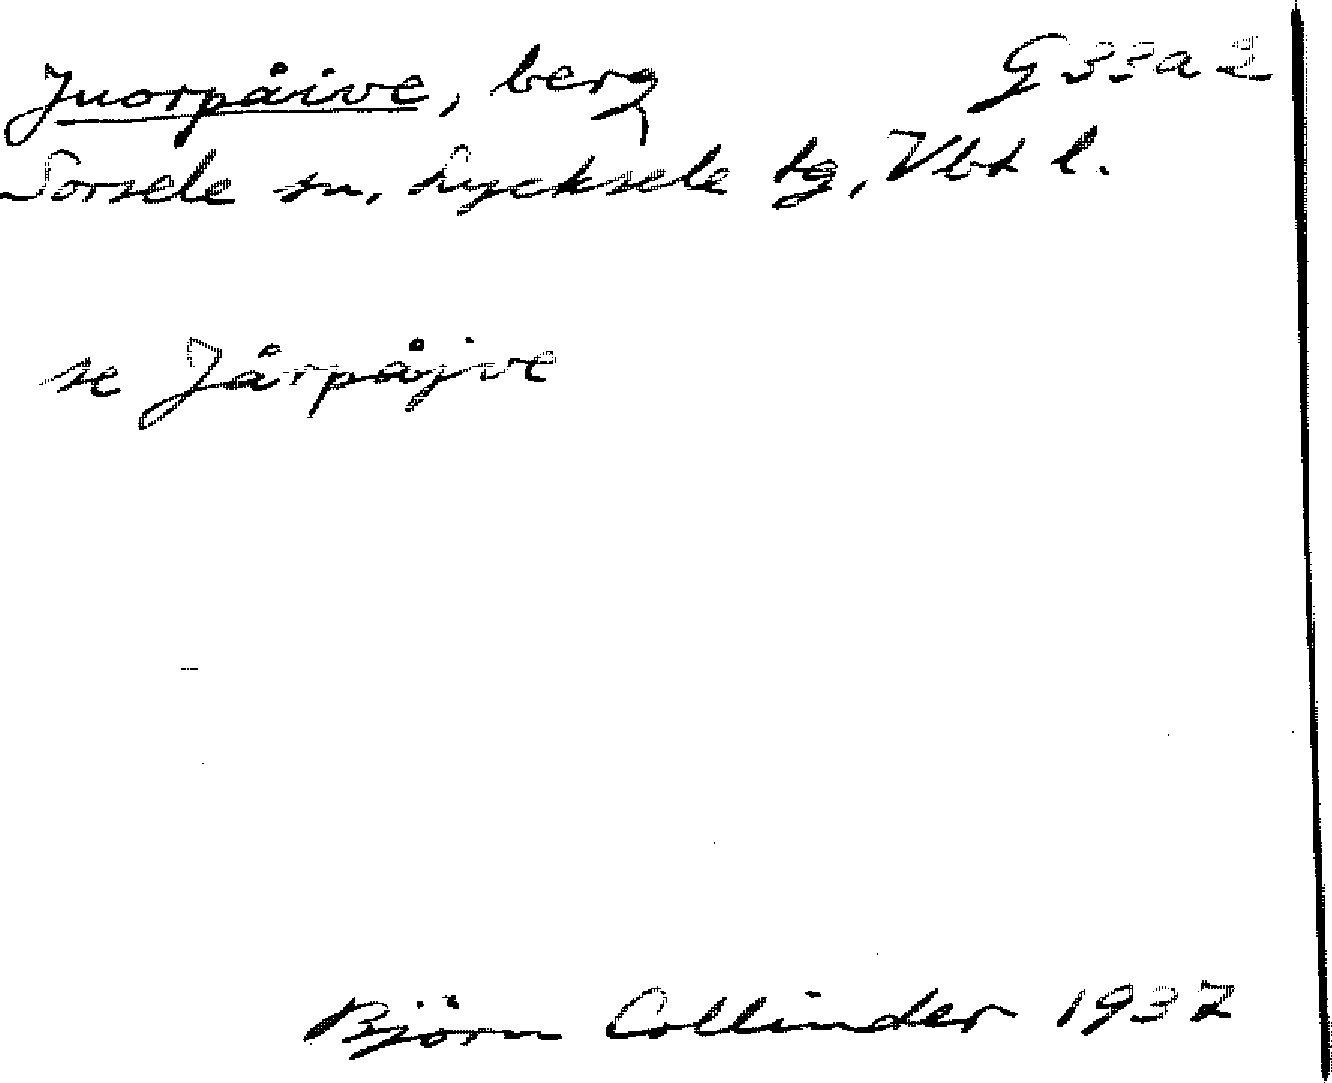 Juorpåive, berg G 33 a 2
Sorsele sn, Lycksele tg, Vbt l.
se Jårpåjve
Björn Collinder 1937